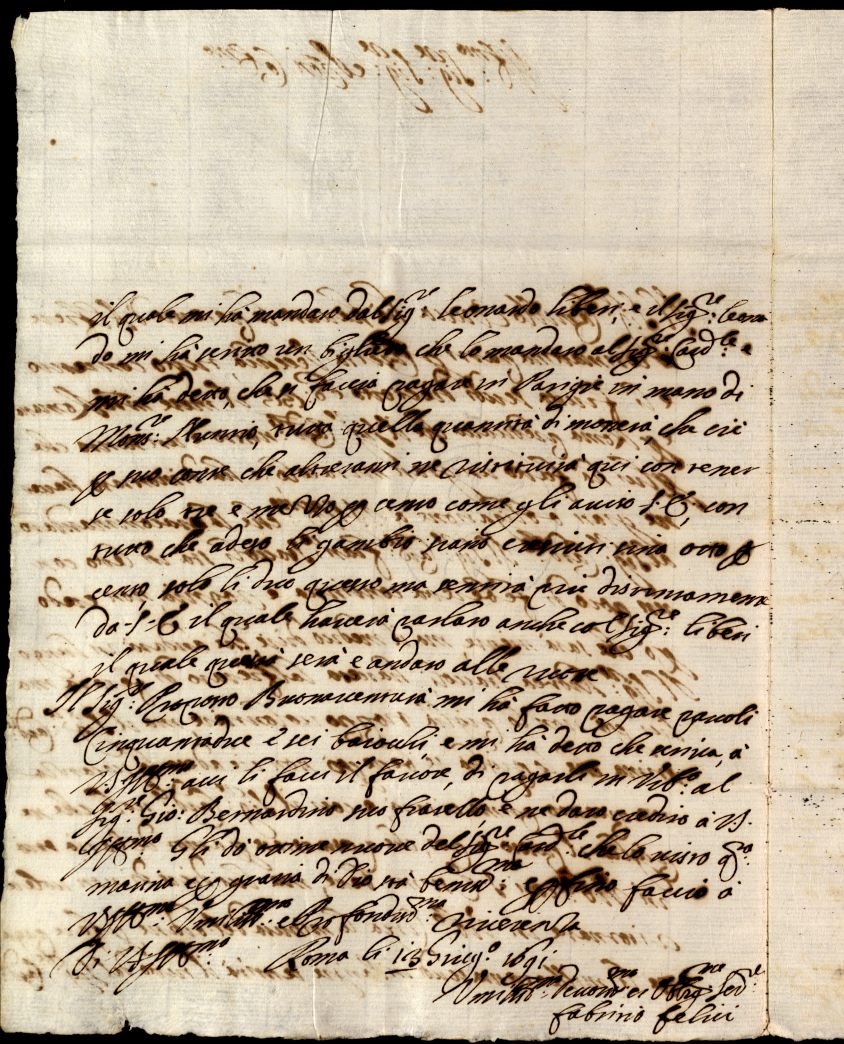 il quale mi ha mandato dal Sig.re: leonardo liberi, e il Sig.re: leonar
do mi ha scritto un biglietto che lo mandato al Sig.re Card.le: e
mi ha detto, che si faccia pagare in Parigie in mano di
Mons.re: tutta quella quantità di moneta, che c'è
p suo conto che altretanti ne ristituirà qui con tener
se solo tre e mezzo p cento come gli aviso S. E, con
tutto che adeso li gambio siano otto p
cento solo li dico questo ma sentirà più distintamente
da S. E il quale haverà parlato anche col Sig.re: liberi
il quale questa sera è andato alle
Il Sig.re: Buonaventura mi ha fatto pagare pavoli
Cinquantadue e sei baiochi e mi ha detto che scriva, à
V.S Ill.mo acci li facci il favore, di pagarli in Vit.o: al
Sig.re Gio: Bernardino suo fratello e ne dara credito à V.S.
Ill.mo Gli dò ottime nuove del Sig.re Card.le che lo visto q.ta
matina e p gratia di Dio stà beniss.mo: e p fine faccio à
V.S Ill.mo Umiliss.ma e Profondiss.ma riverenza
Di V.S Ill.mo Roma li: 13 Giug.o 1691
Umiliss.mo Devotiss.mo et Oblig.mo Ser.re
fabritio felici